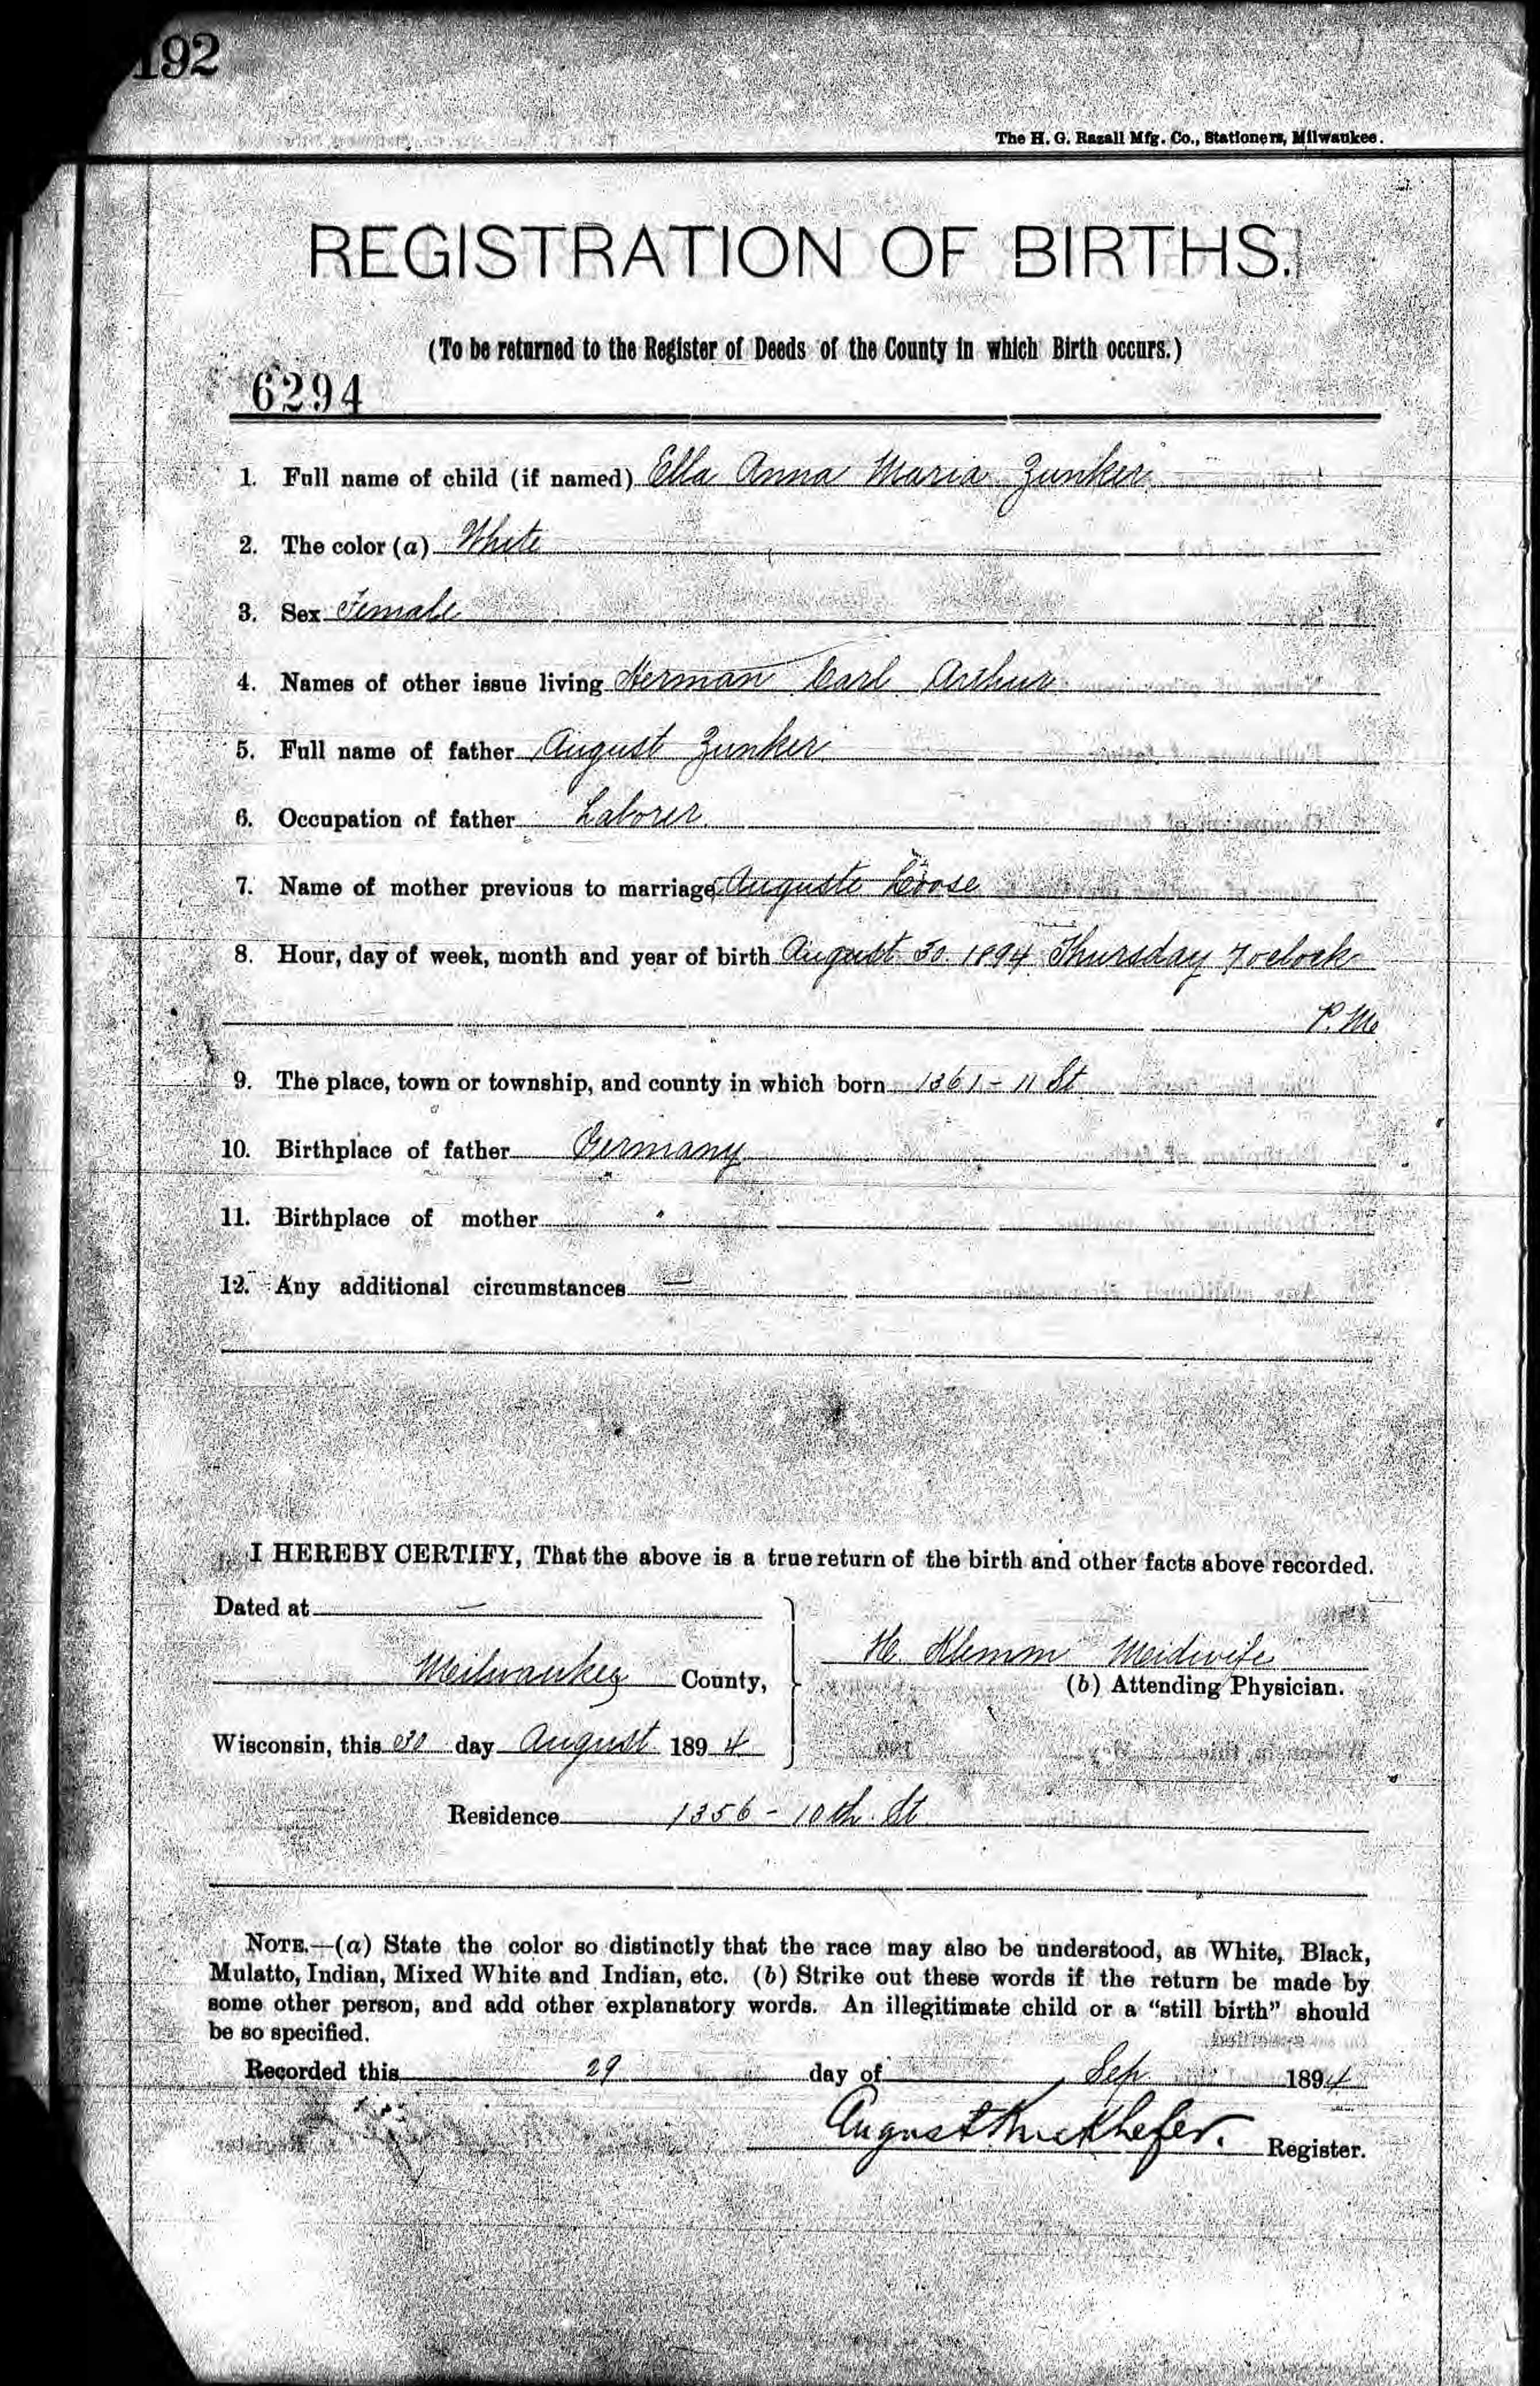 192
The H. G. Razall Mfg. Co., Stationers, Milwaukee.
REGISTRATION OF BIRTHS.
(To be returned to the Register of Deeds of the County in which Birth occurs.)
6294
1. Full name of child (if named) Ella Anna Maria Zunker
2. The color (a) White
3. Sex Female
4. Names of other issue living Herman Carl Arthur
5. Full name of father August Zunker
6. Occupation of father Laborer
7. Name of mother previous to marriage Auguste Loose
8. Hour, day of week, month and year of birth August 30 1894 Thursday 7 oclock
P.M.
9. The place, town or township, and county in which born 1361 - 11 St
10. Birthplace of father Germany
11. Birthplace of mother "
12. Any additional circumstances —
I HEREBY CERTIFY, That the above is a true return of the birth and other facts above recorded.
Dated at —
H. Klemm Meidwife
Meilwaukey County,
(b) Attending Physician.
Wisconsin, this 30 day August 1894
Residence 1356 - 10th St
NOTE.—(a) State the color so distinctly that the race may also be understood, as White, Black,
Mulatto, Indian, Mixed White and Indian, etc. (b) Strike out these words if the return be made by
some other person, and add other explanatory words. An illegitimate child or a "still birth" should
be so specified.
Recorded this 29 day of Sep 1894
August Kieckhefer. Register.